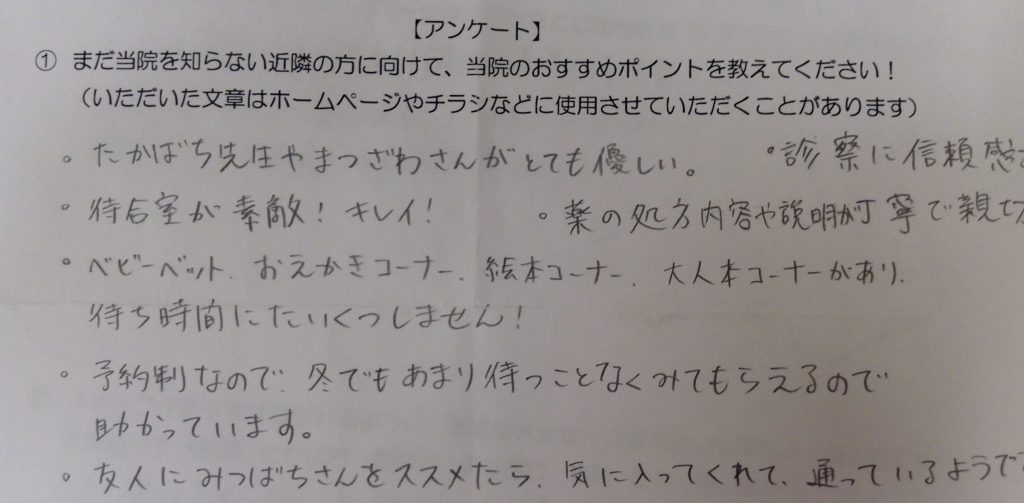 【アンケート】
① まだ当院を知らない近隣の方に向けて、当院のおすすめポイントを教えてください！
（いただいた文章はホームページやチラシなどに使用させていただくことがあります）
。たかばち先生やまつざわさんがとても優しい。 。診察に信頼感
。待合室が素敵！キレイ！ 。薬の処方内容や説明が丁寧で親切
。ベビーベット、おえかきコーナー、絵本コーナー、大人本コーナーがあり、
待ち時間にたいくつしません！
。予約制なので、冬でもあまり待つことなくみてもらえるので
助かっています。
。友人にみつばちさんをススメたら、気に入ってくれて、通っているようで